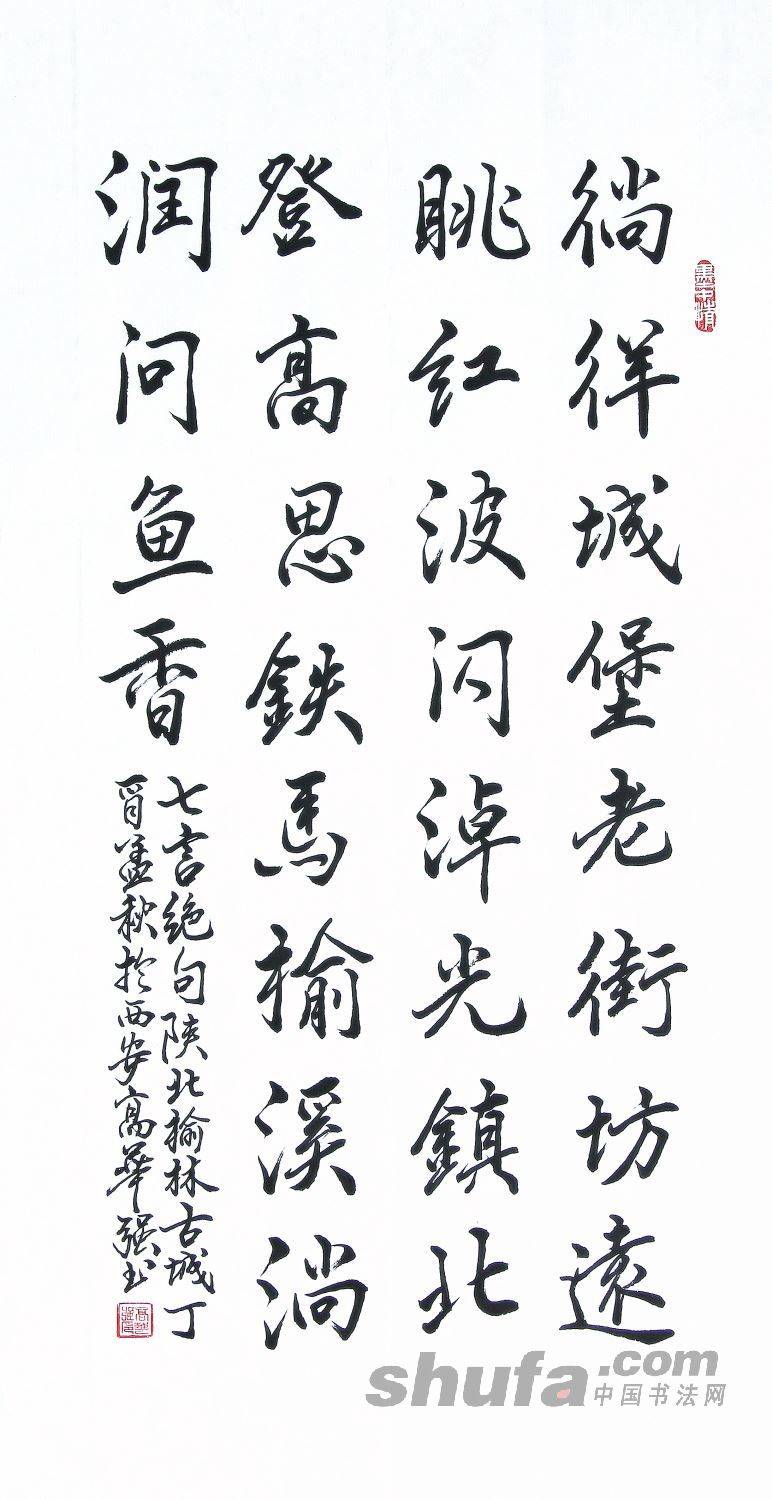 徜徉城堡老街坊遠
眺红波闪淖光鎮北
登高思鉄馬榆溪淌
润问鱼香
七言绝句陕北榆林古城丁
酉孟秋於西安高華强书
shufa.com
中国书法网